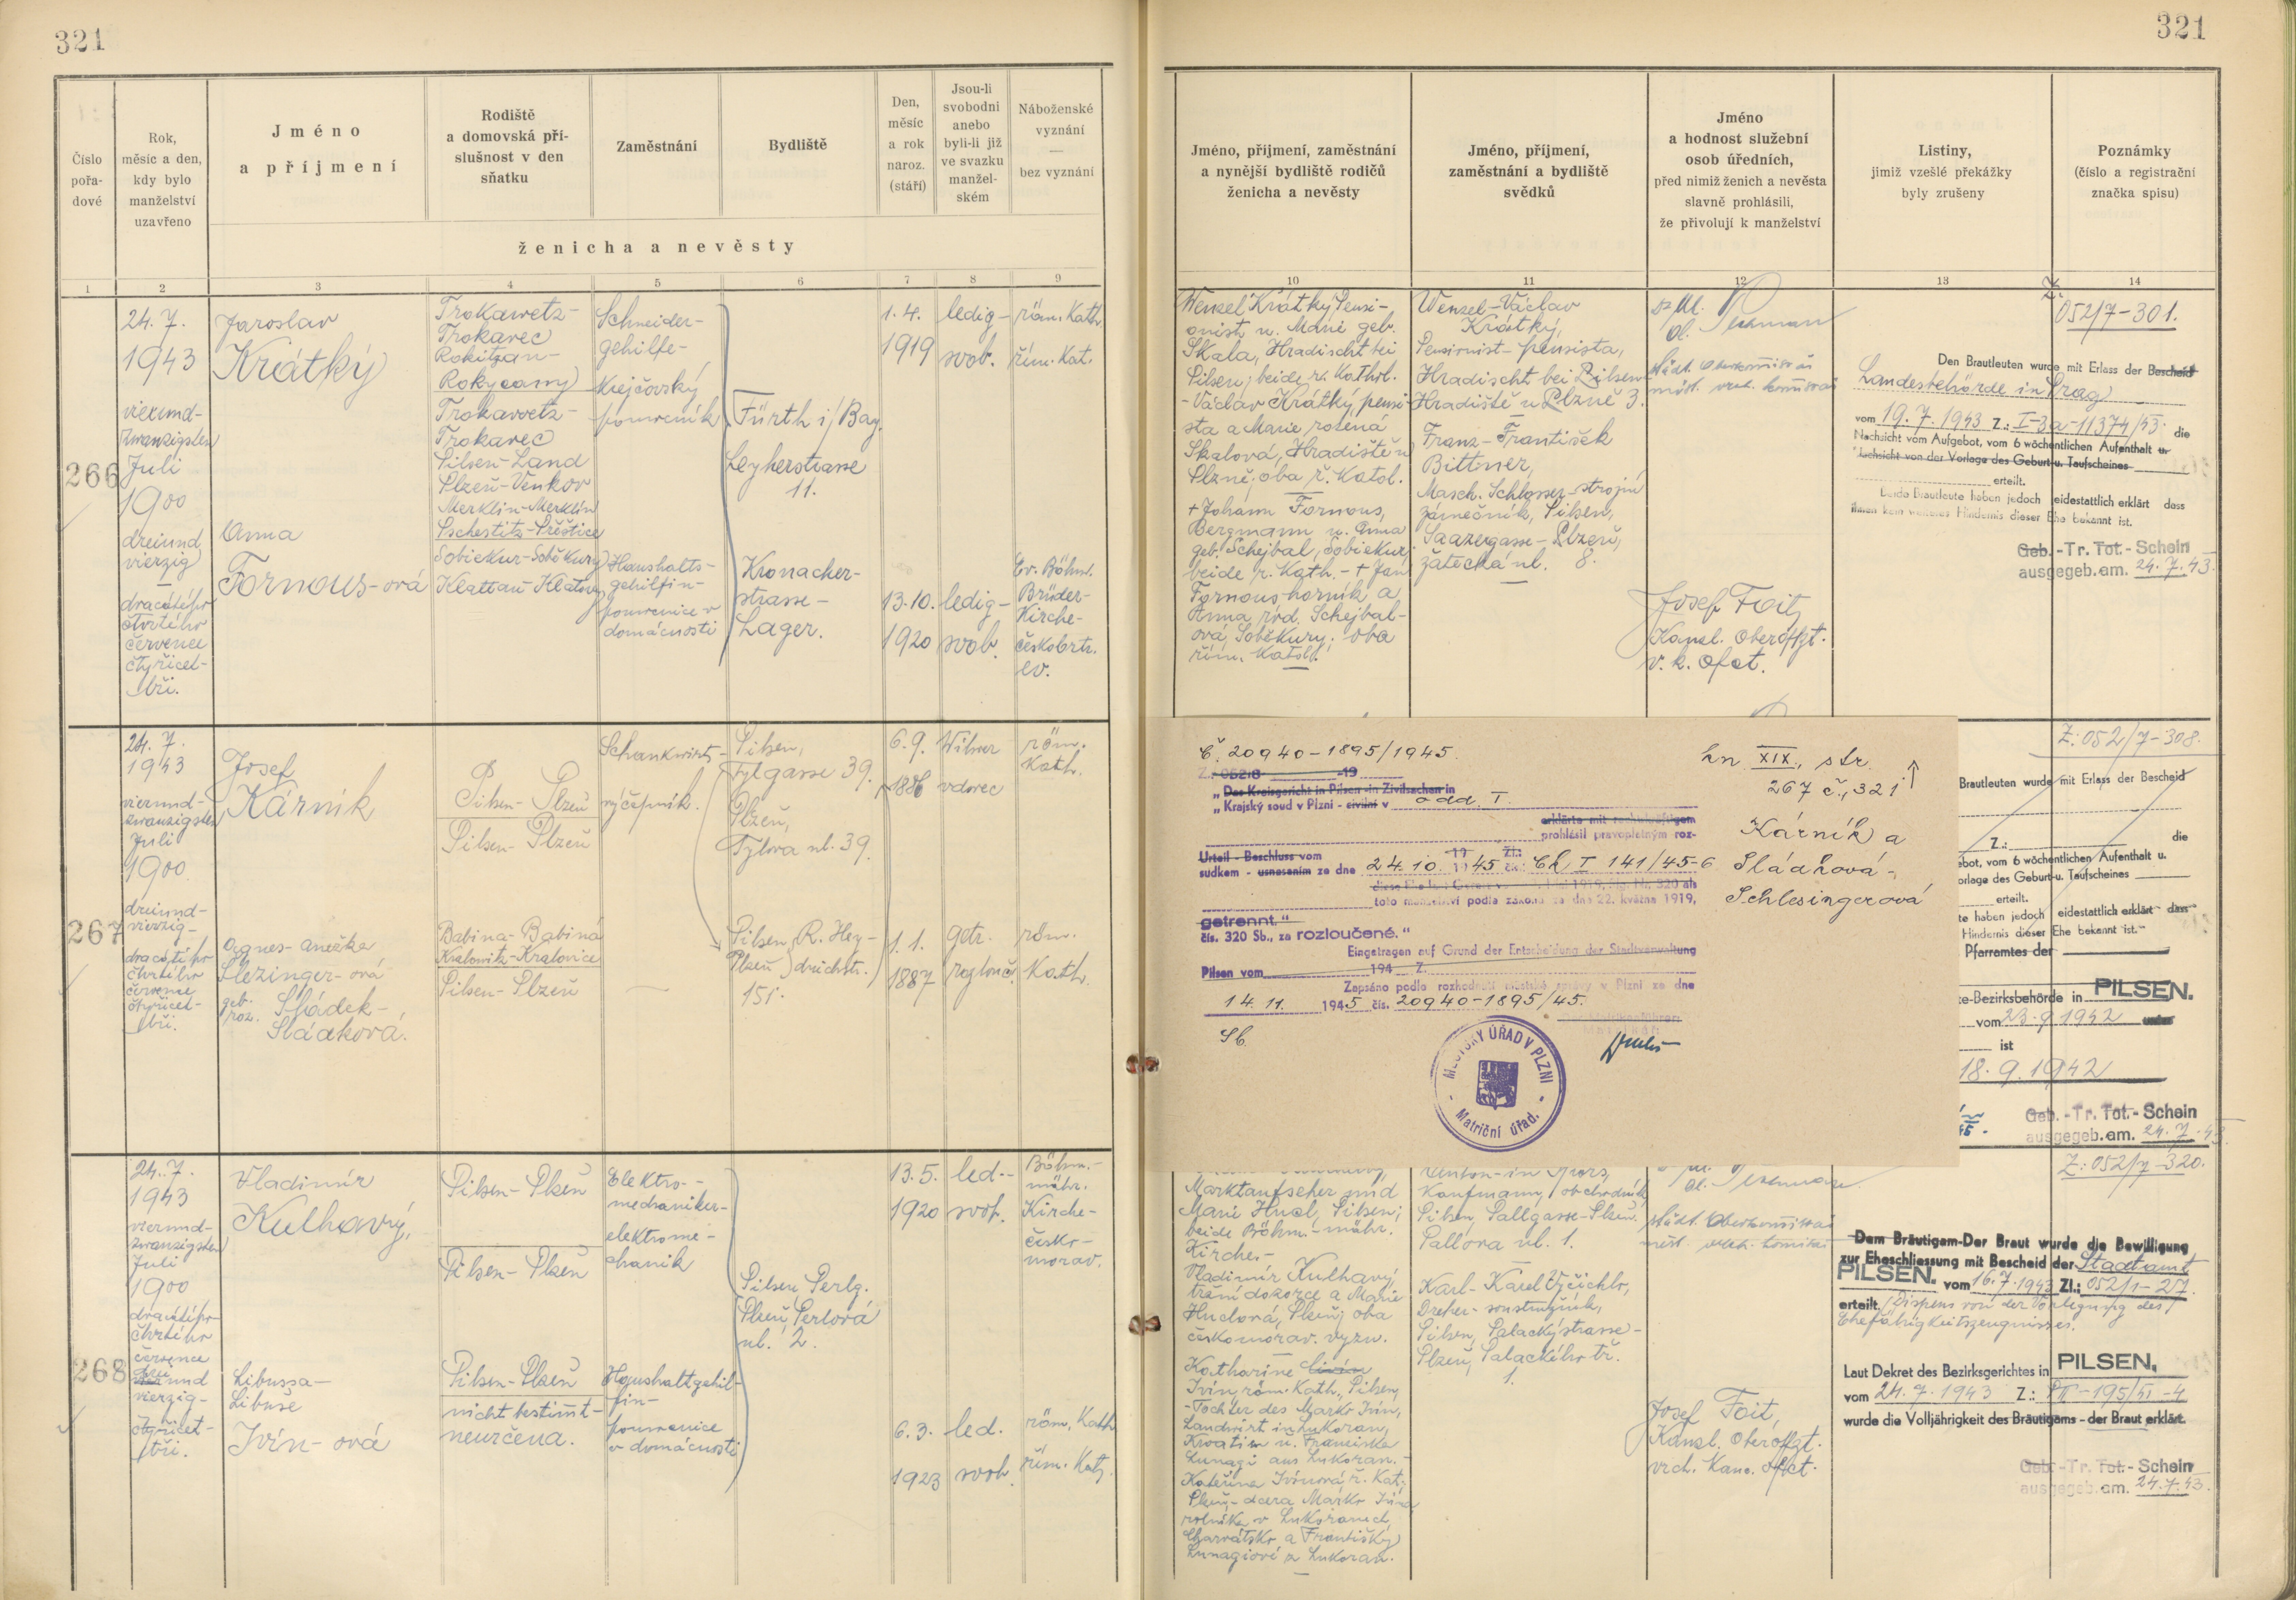 321
321
Číslo
pořa-
dové
Rok,
měsíc a den,
kdy bylo
manželství
uzavřeno
Jméno
a příjmení
Rodiště
a domovská pří-
slušnost v den
sňatku
Zaměstnání
Bydliště
Den,
měsíc
a rok
naroz.
(stáří)
Jsou-li
svobodni
anebo
byli-li již
ve svazku
manžel-
ském
Náboženské
vyznání
—
bez vyznání
ženicha a nevěsty
Jméno, příjmení, zaměstnání
a nynější bydliště rodičů
ženicha a nevěsty
Jméno, příjmení,
zaměstnání a bydliště
svědků
Jméno
a hodnost služební
osob úředních,
před nimiž ženich a nevěsta
slavně prohlásili,
že přivolují k manželství
Listiny,
jimiž vzešlé překážky
byly zrušeny
Poznámky
(číslo a registrační
značka spisu)
1 2 3 4 5 6 7 8 9
10 11 12 13 14
266
24. 7.
1943
vierund-
zwanzigsten
Juli
1900
dreiund
vierzig
—
dvacátého
čtvrtého
července
čtyřicet-
tři.
Jaroslav
Krátký
Anna
Fornous-ová
Trokawetz-
Trokavec
Rokitzan-
Rokycany
Trokawetz-
Trokavec
Pilsen-Land
Plzeň-Venkov
Merklin-Merklín
Pschestitz-Přeštice
Sobiekur-Soběkury
Klattau Klatovy
Schneider-
gehilfe-
Krejčovský
pomocník
Haushalts-
gehilfin-
pomocnice v
domácnosti
Fürth i/Bay.
Leyherstrasse
11.
Kronacher-
strasse-
Lager.
1. 4.
1919
13. 10.
1920
ledig-
svob.
ledig-
svob.
röm. Kath.
řím. Kat.
Ev. Böhm.
Brüder-
Kirche-
českobrtr.
ev.
Wenzel Krátký Pensi-
onist u. Marie geb.
Skala, Hradischt bei
Pilsen, beide r. Kathol.
-Václav Krátký, pensi-
sta a Marie rozená
Skalová, Hradiště u
Plzně, oba ř. Katol.
+ Johann Fornous,
Bergmann u. Anna
geb. Schejbal, Sobiekur
beide r. Kath. - + Jan
Fornous horník a
Anna roz. Schejbal-
ová Soběkury, oba
řím. Katol.
Wenzel-Václav
Krátký,
Pensionist-pensista,
Hradischt bei Pilsen-
Hradiště u Plzně 3.
Franz-František
Bittner,
Masch. Schlosser-strojní
zámečník, Pilsen,
Saazergasse-Plzeň,
žatecká ul. 8.
Josef Foit,
Kanzl. Oberoffzt.
v. k. ofct.
Z.
052/7-301.
Den Brautleuten wurde mit Erlass der Bescheid
Landesbehörde in Prag
vom 19. 7. 1943 Z.: I-3a-11374/43. die
Nachsicht vom Aufgebot, vom 6 wöchentlichen Aufenthalt u.
Nachsicht von der Vorlage des Geburt-u. Taufscheines
erteilt.
Beide Brautleute haben jedoch eidestattlich erklärt dass
ihnen kein weiteres Hindernis dieser Ehe bekannt ist.
Geb.-Tr. Tot.-Schein
ausgegeb. am. 24. 7. 43.
267
24. 7.
1943
vierund-
zwanzigsten
Juli
1900
dreiund-
vierzig-
dvacátého
čtvrtého
července
čtyřicet-
tři.
Josef
Kárník
Agnes-Anežka
Slezinger-ová
geb.
roz. Sládek-
Sládková.
Pilsen-Plzeň
Pilsen-Plzeň
Babina-Babiná
Kralowitz-Kralovice
Pilsen-Plzeň
Schankwirt-
výčepník.
—
Pilsen,
Tylgasse 39.
Plzeň,
Tylova ul. 39.
Pilsen, R. Hey-
Plzeň drichstr.
151.
6. 9.
1886
1. 1.
1887
Witwer
vdovec
getr.
rozlouč.
röm.
Kath.
röm.
Kath.
č. 20940-1895/1945
Z.: 052.8 19
„ Das Kreisgericht in Pilsen in Zivilsachen in
„ Krajský soud v Plzni - civilní v odd. I.
erklärte mit rechtskräftigem
prohlásil pravoplatným roz-
Urteil - Beschluss vom 19 Zl.:
sudkem - usnesením ze dne 24. 10. 1945 čk: Ck I 141/45-6
toto manželství podle zákona ze dne 22. května 1919,
getrennt."
čís. 320 Sb., za rozloučené."
Eingetragen auf Grund der Entscheidung der Stadtverwaltung
Pilsen vom 194 Z.
Zapsáno podle rozhodnutí městské správy v Plzni ze dne
14. 11. 1945 čís. 20940-1895/45.
MĚSTSKÝ ÚŘAD V PLZNI
- Matriční úřad. -
kn. XIX., str.
267 č., 321
Kárník a
Sládková-
Schlesingerová
Z: 052/7-308.
Brautleuten wurde mit Erlass der Bescheid
Z.: die
bot, vom 6 wöchentlichen Aufenthalt u.
orlage des Geburt-u. Taufscheines
erteilt.
te haben jedoch eidestattlich erklärt dass
Hindernis dieser Ehe bekannt ist."
Pfarramtes der
te-Bezirksbehörde in PILSEN.
vom 23. 9. 1942
ist
18. 9. 1942
Geb.-Tr. Tot.-Schein
ausgegeb. am. 24. 7. 43.
268
24. 7.
1943
vierund-
zwanzigsten
Juli
1900
dvacátého
čtvrtého
července
drei
und
vierzig-
čtyřicet-
tři.
Vladimír
Kulhavý,
Libussa-
Libuše
Ivín-ová
Pilsen-Plzeň
Pilsen-Plzeň
Pilsen-Plzeň
nicht bestimmt-
neurčena.
Elektro-
mechaniker-
elektrome-
chanik
Haushaltgehil-
fin-
pomocnice
v domácnosti
Pilsen, Perlg.
Plzeň, Perlová
ul. 2.
13. 5.
1920
6. 3.
1923
led.-
svob.
led.
svob.
Böhm.-
mähr.
Kirche-
česko-
morav.
röm. Kath
řím. Kat.
Marktaufseher und
Marie Hucl, Pilsen;
beide Böhm.-mähr.
Kirche.-
Vladimír Kulhavý,
tržní dozorce a Marie
Huclová, Plzeň, oba
českomorav. vyzn.
Katharine
Ivín, röm. Kath., Pilsen,
-Tochter des Marko Ivín,
Landwirt in Lukoran,
Kroatien u. Franciska
Lunagi aus Lukoran.-
Kateřina Ivínová ř. Kat.
Plzeň,-dcera Marko Ivína
rolníka v Lukoranech,
Charvátsko a Františky
Lunagiové z Lukoran.
Kaufmann, obchodník
Pilsen, Pallgasse-Plzeň.
Pallova ul. 1.
Karl-Karel Vyčichlo,
Dreher-soustružník,
Pilsen, Palackýstrasse-
Plzeň, Palackého tř.
1.
Josef Foit,
Kanzl. Oberoffzt.
vrch. Kanc. offct.
Z: 052/7-320.
Dem Bräutigam-Der Braut wurde die Bewilligung
zur Eheschliessung mit Bescheid der Stadtamt
PILSEN. vom 16. 7. 1943 Zl.: 052/1-257.
erteilt. Dispens von der Vorlegung des
Ehefähigkeitszeugnisses.
Laut Dekret des Bezirksgerichtes in PILSEN.
vom 24. 7. 1943 Z.: PII-195/43-4
wurde die Volljährigkeit des Bräutigams - der Braut erklärt.
Geb.-Tr. Tot.-Schein
ausgegeb. am. 24. 7. 43.